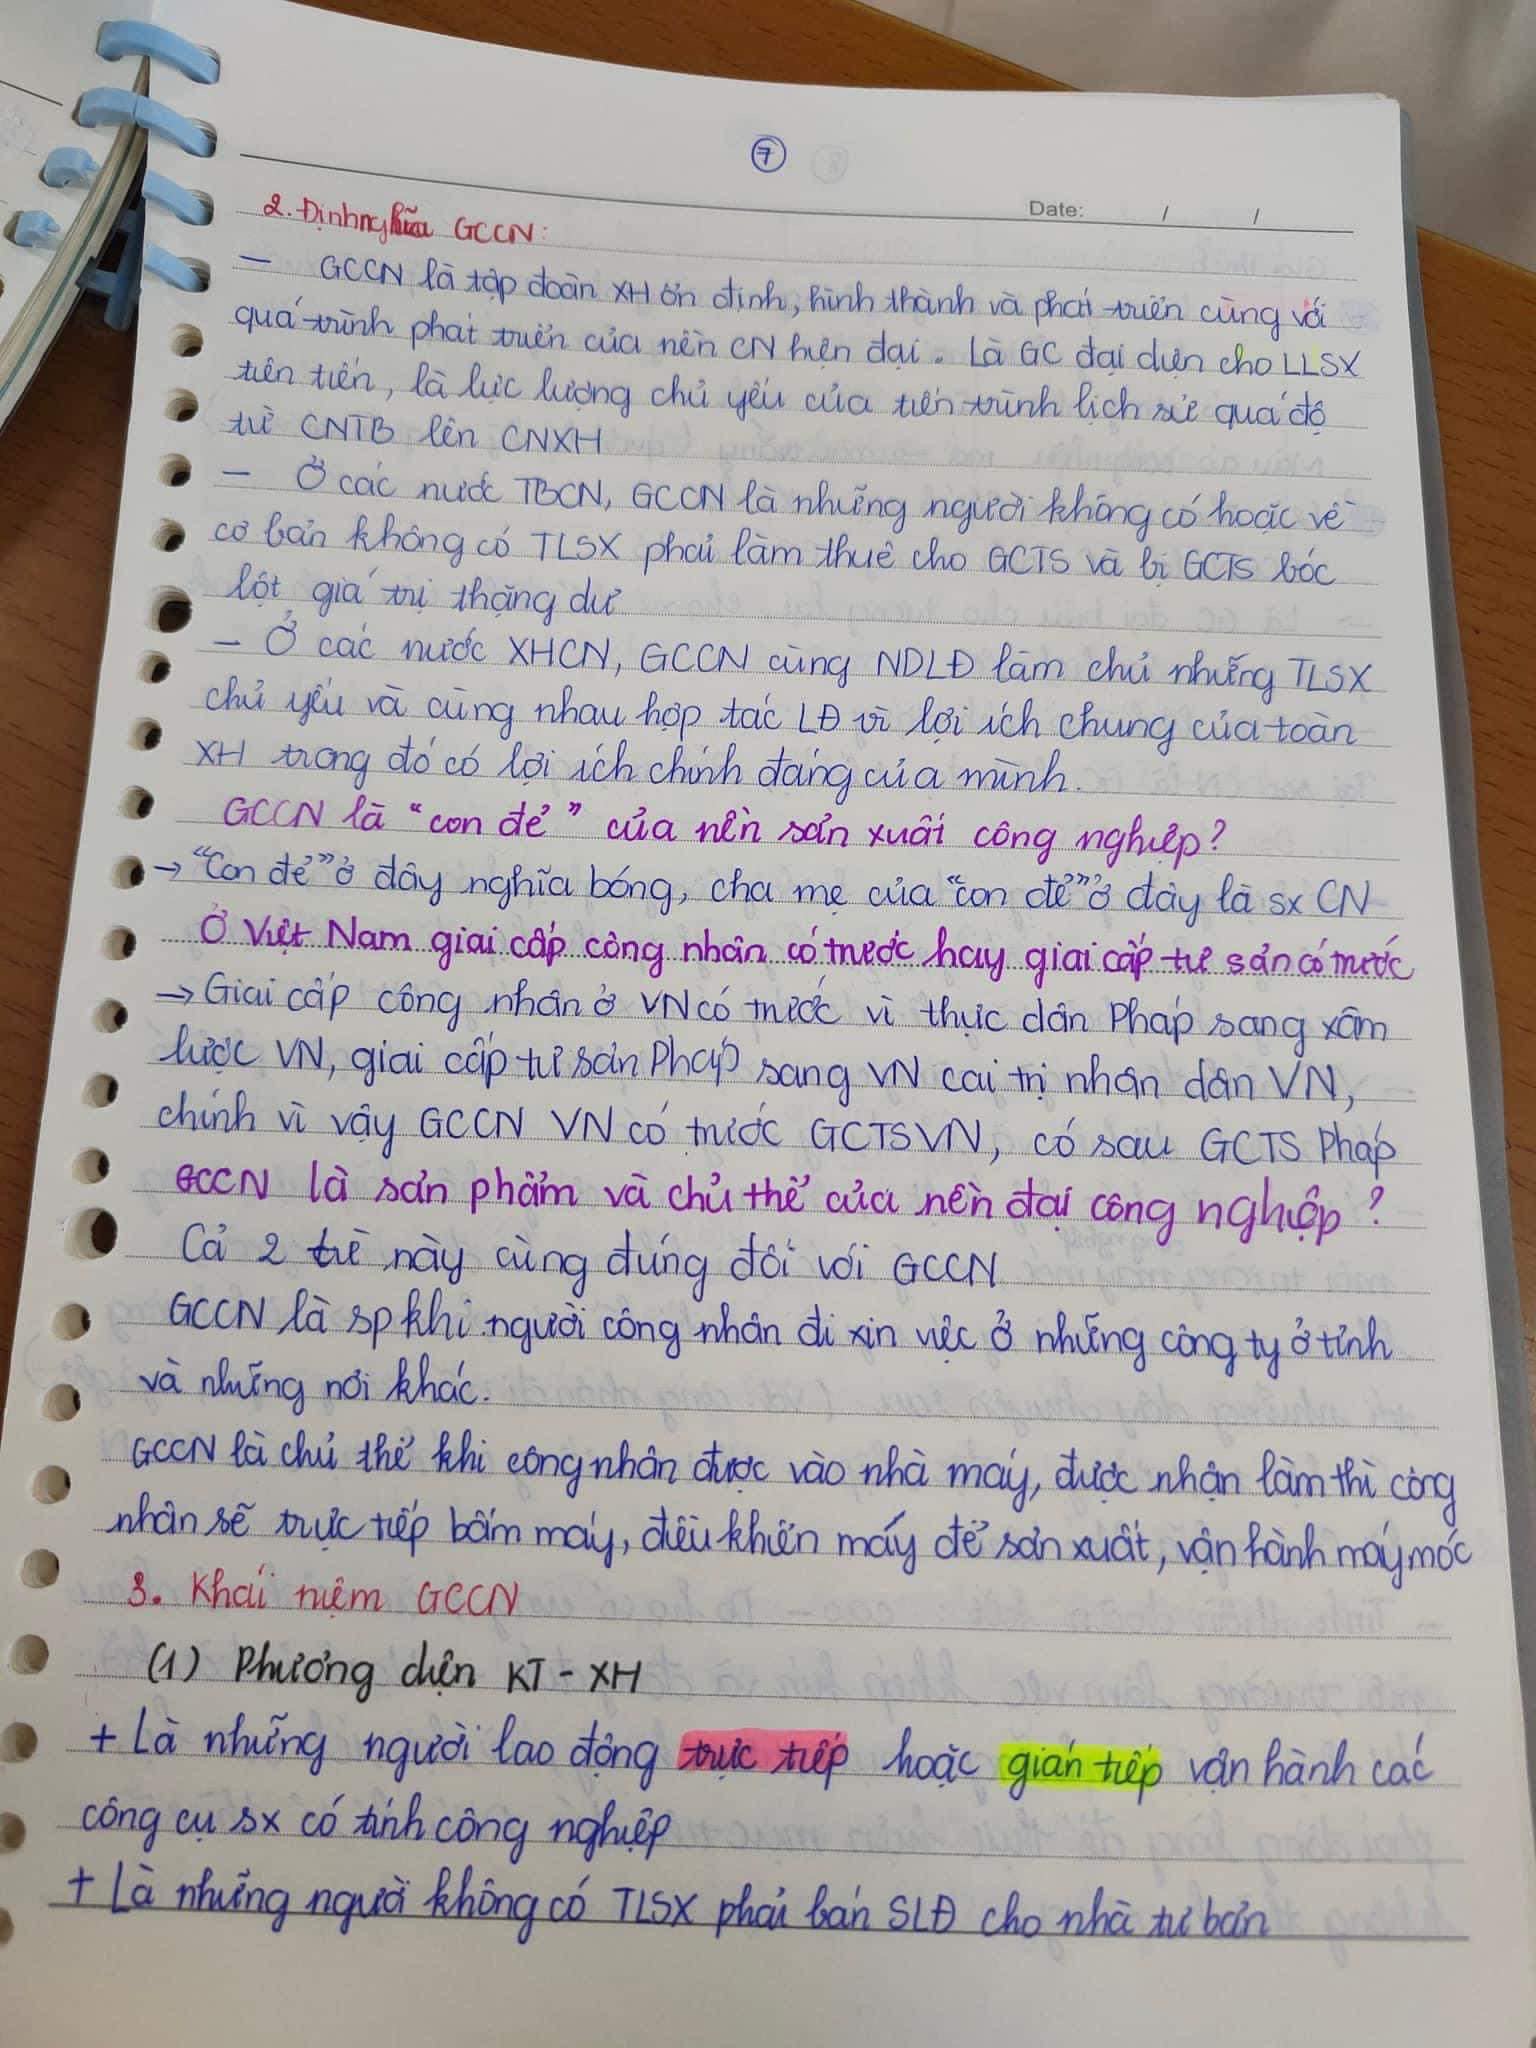 7
Date: / /
2. Định nghĩa GCCN:
– GCCN là tập đoàn XH ổn định, hình thành và phát triển cùng với
quá trình phát triển của nền CN hiện đại. Là GC đại diện cho LLSX
tiên tiến, là lực lượng chủ yếu của tiến trình lịch sử quá độ
từ CNTB lên CNXH
– Ở các nước TBCN, GCCN là những người không có hoặc về
cơ bản không có TLSX phải làm thuê cho GCTS và bị GCTS bóc
lột giá trị thặng dư
– Ở các nước XHCN, GCCN cùng NDLĐ làm chủ những TLSX
chủ yếu và cùng nhau hợp tác LĐ vì lợi ích chung của toàn
XH trong đó có lợi ích chính đáng của mình.
GCCN là "con đẻ" của nền sản xuất công nghiệp?
→ "Con đẻ" ở đây nghĩa bóng, cha mẹ của "con đẻ" ở đây là sx CN
Ở Việt Nam giai cấp công nhân có trước hay giai cấp tư sản có trước
→ Giai cấp công nhân ở VN có trước vì thực dân Pháp sang xâm
lược VN, giai cấp tư sản Pháp sang VN cai trị nhân dân VN,
chính vì vậy GCCN VN có trước GCTS VN, có sau GCTS Pháp
GCCN là sản phẩm và chủ thể của nền đại công nghiệp?
Cả 2 từ này cùng đúng đối với GCCN
GCCN là sp khi người công nhân đi xin việc ở những công ty ở tỉnh
và những nơi khác.
GCCN là chủ thể khi công nhân được vào nhà máy, được nhận làm thì công
nhân sẽ trực tiếp bấm máy, điều khiển máy để sản xuất, vận hành máy móc
3. Khái niệm GCCN
(1) Phương diện KT - XH
+ Là những người lao động trực tiếp hoặc gián tiếp vận hành các
công cụ sx có tính công nghiệp
+ Là những người không có TLSX phải bán SLĐ cho nhà tư bản